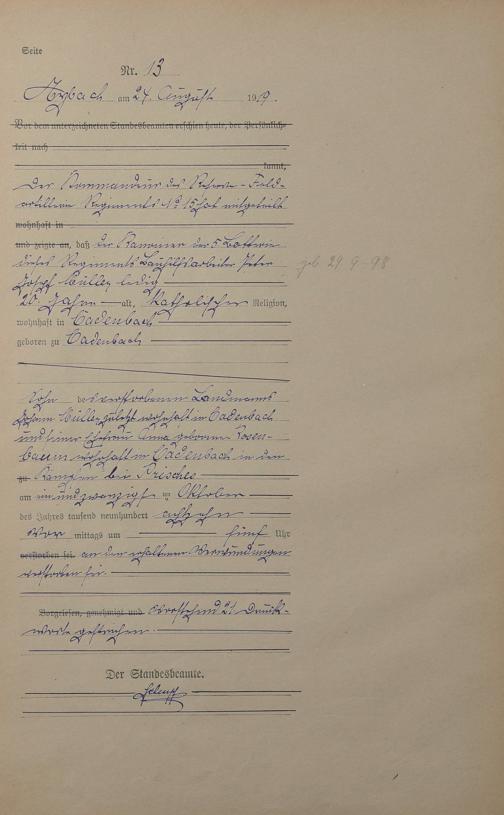 Seite
Nr. 13
Arzbach am 24. August 1919.
Vor dem unterzeichneten Standesbeamten erschien heute, der Persönlich-
keit nach
kannt,
Der Kommandeur des Reserve-Feld-
artillerie Regiments No 15 hat mitgeteilt
wohnhaft in
und zeigte an, daß der Kanonier der 5 Batterie
dieses Regiments Bauhilfsarbeiter Peter
Josef Müller ledig
20. Jahre alt, Katholischer Religion,
wohnhaft in Cadenbach
geboren zu Cadenbach
Sohn des verstorbenen Landmanns
Johann Müller zuletzt wohnhaft in Cadenbach
und seiner Ehefrau Anna geborene Rosen-
baum wohnhaft in Cadenbach in den
zu Kämpfen bei Prisches
am einundzwanzigsten Oktober
des Jahres tausend neunhundert achtzehn
Vor mittags um fünf Uhr
verstorben sei. an den erhaltenen Verwundungen
verstorben sei.
Vorgelesen, genehmigt und Vorstehend 21 Druck-
worte gestrichen
Der Standesbeamte.
geb. 29 9-98